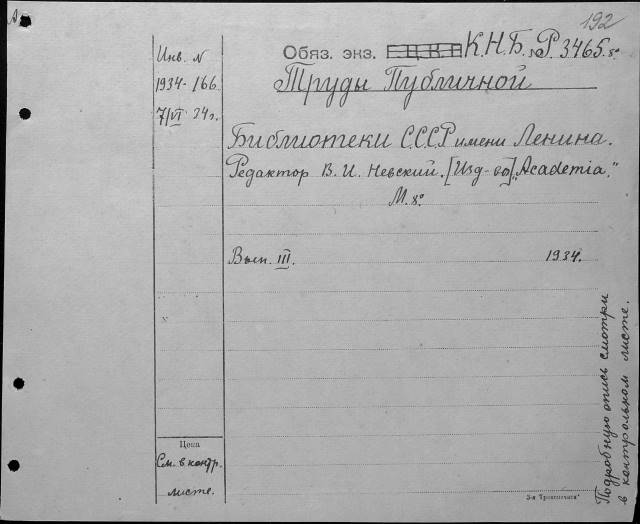 192
Инв. N
1934-166
7/VI 34г.
Обяз. экз. К.Н.Б. Р 3465. 8°
Труды Публичной
Библиотеки С.С.С.Р имени Ленина.
Редактор В. И. Невский. [Изд-во] „Academia."
М. 8°
Вып. III. 1934.
Цена
См. в контр.
листе.
Подробную опись смотри
в контрольном листе.